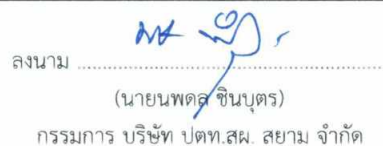 ลงนาม ................................................
(นายนพดล ชินบุตร)
กรรมการ บริษัท ปตท.สผ. สยาม จำกัด